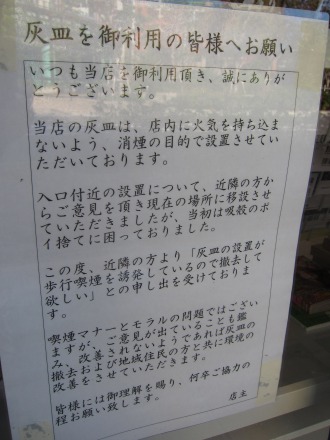 灰皿を御利用の皆様へお願い
いつも当店を御利用頂き、誠にありが
とうございます。
当店の灰皿は、店内に火気を持ち込ま
ないよう、消煙の目的で設置させてい
ただいております。
入口付近の設置について、近隣の方か
らご意見を頂き現在の場所に移設させ
ていただきましたが、当初は吸殻のポ
イ捨てに困っておりました。
この度、近隣の方より「灰皿の設置が
歩行喫煙を誘発しているので撤去して
欲しい」との申し出を受けておりま
す。
喫煙マナーとモラルの問題ではござい
ますが、ご意見が出ていることも鑑
み、改善されないようであれば灰皿の
撤去および地域住民の方と共に環境の
改善をさせていただきます。
皆様には御理解を賜り、何卒ご協力の
程お願い致します。
店主